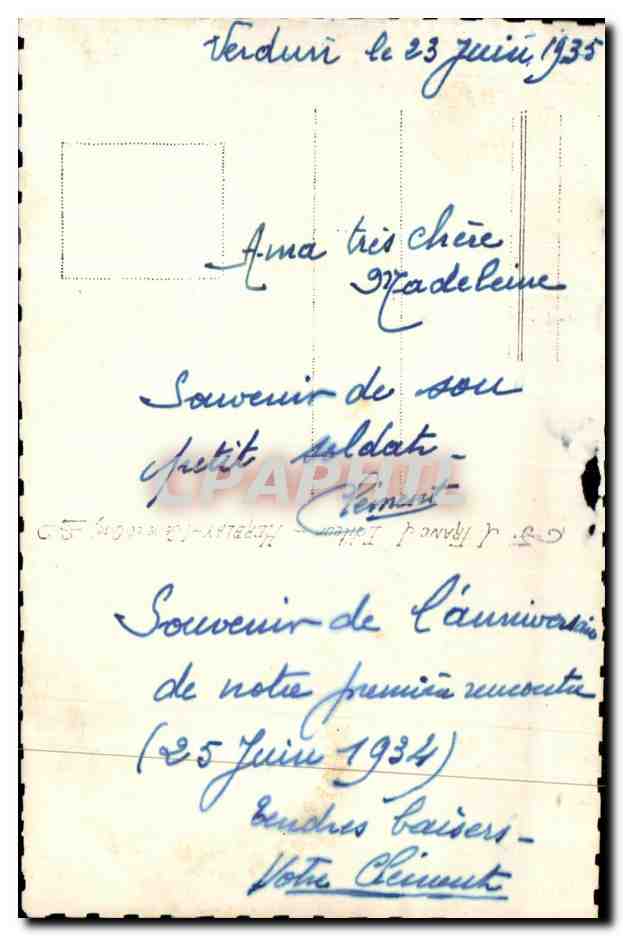 Verdun le 23 Juin 1935
A ma très chère
Madeleine
Souvenir de son
petit soldat -
Clément
CPAPHIL
Souvenir de l'anniversaire
de notre première rencontre
(25 Juin 1934)
Tendres baisers -
Votre Clément